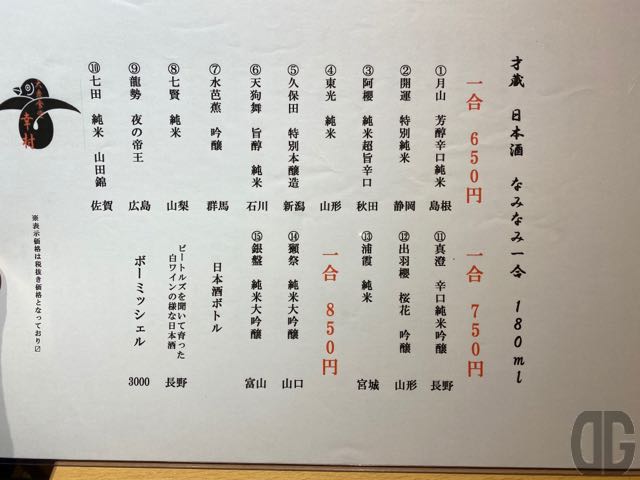 才蔵　日本酒　なみなみ一合　180ml
一合　650円
①月山　芳醇辛口純米　島根
②開運　特別純米　静岡
③阿櫻　純米超旨辛口　秋田
④東光　純米　山形
⑤久保田　特別本醸造　新潟
⑥天狗舞　旨醇　純米　石川
⑦水芭蕉　吟醸　群馬
⑧七賢　純米　山梨
⑨龍勢　夜の帝王　広島
⑩七田　純米　山田錦　佐賀
一合　750円
⑪真澄　辛口純米吟醸　長野
⑫出羽櫻　桜花　吟醸　山形
⑬浦霞　純米　宮城
一合　850円
⑭獺祭　純米大吟醸　山口
⑮銀盤　純米大吟醸　富山
日本酒ボトル
ビートルズを聞いて育った
白ワインの様な日本酒　長野
ボーミッシェル　3000
幸村
※表示価格は税抜き価格となっており〼
DG